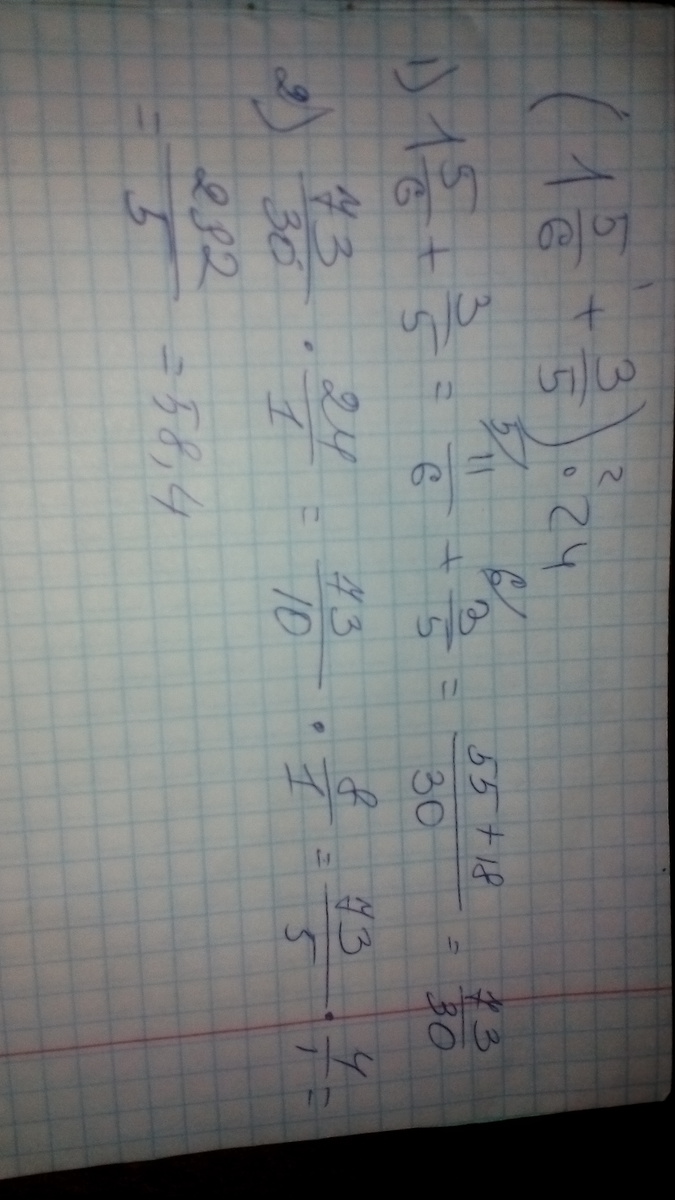 (1 5/6 + 3/5) · 24
1 2
1) 1 5/6 + 3/5 = 11/6 + 3/5 = 55 + 18/30 = 73/30
5 6
2) 73/30 · 24/1 = 73/10 · 8/1 = 73/5 · 4/1 =
= 292/5 = 58,4